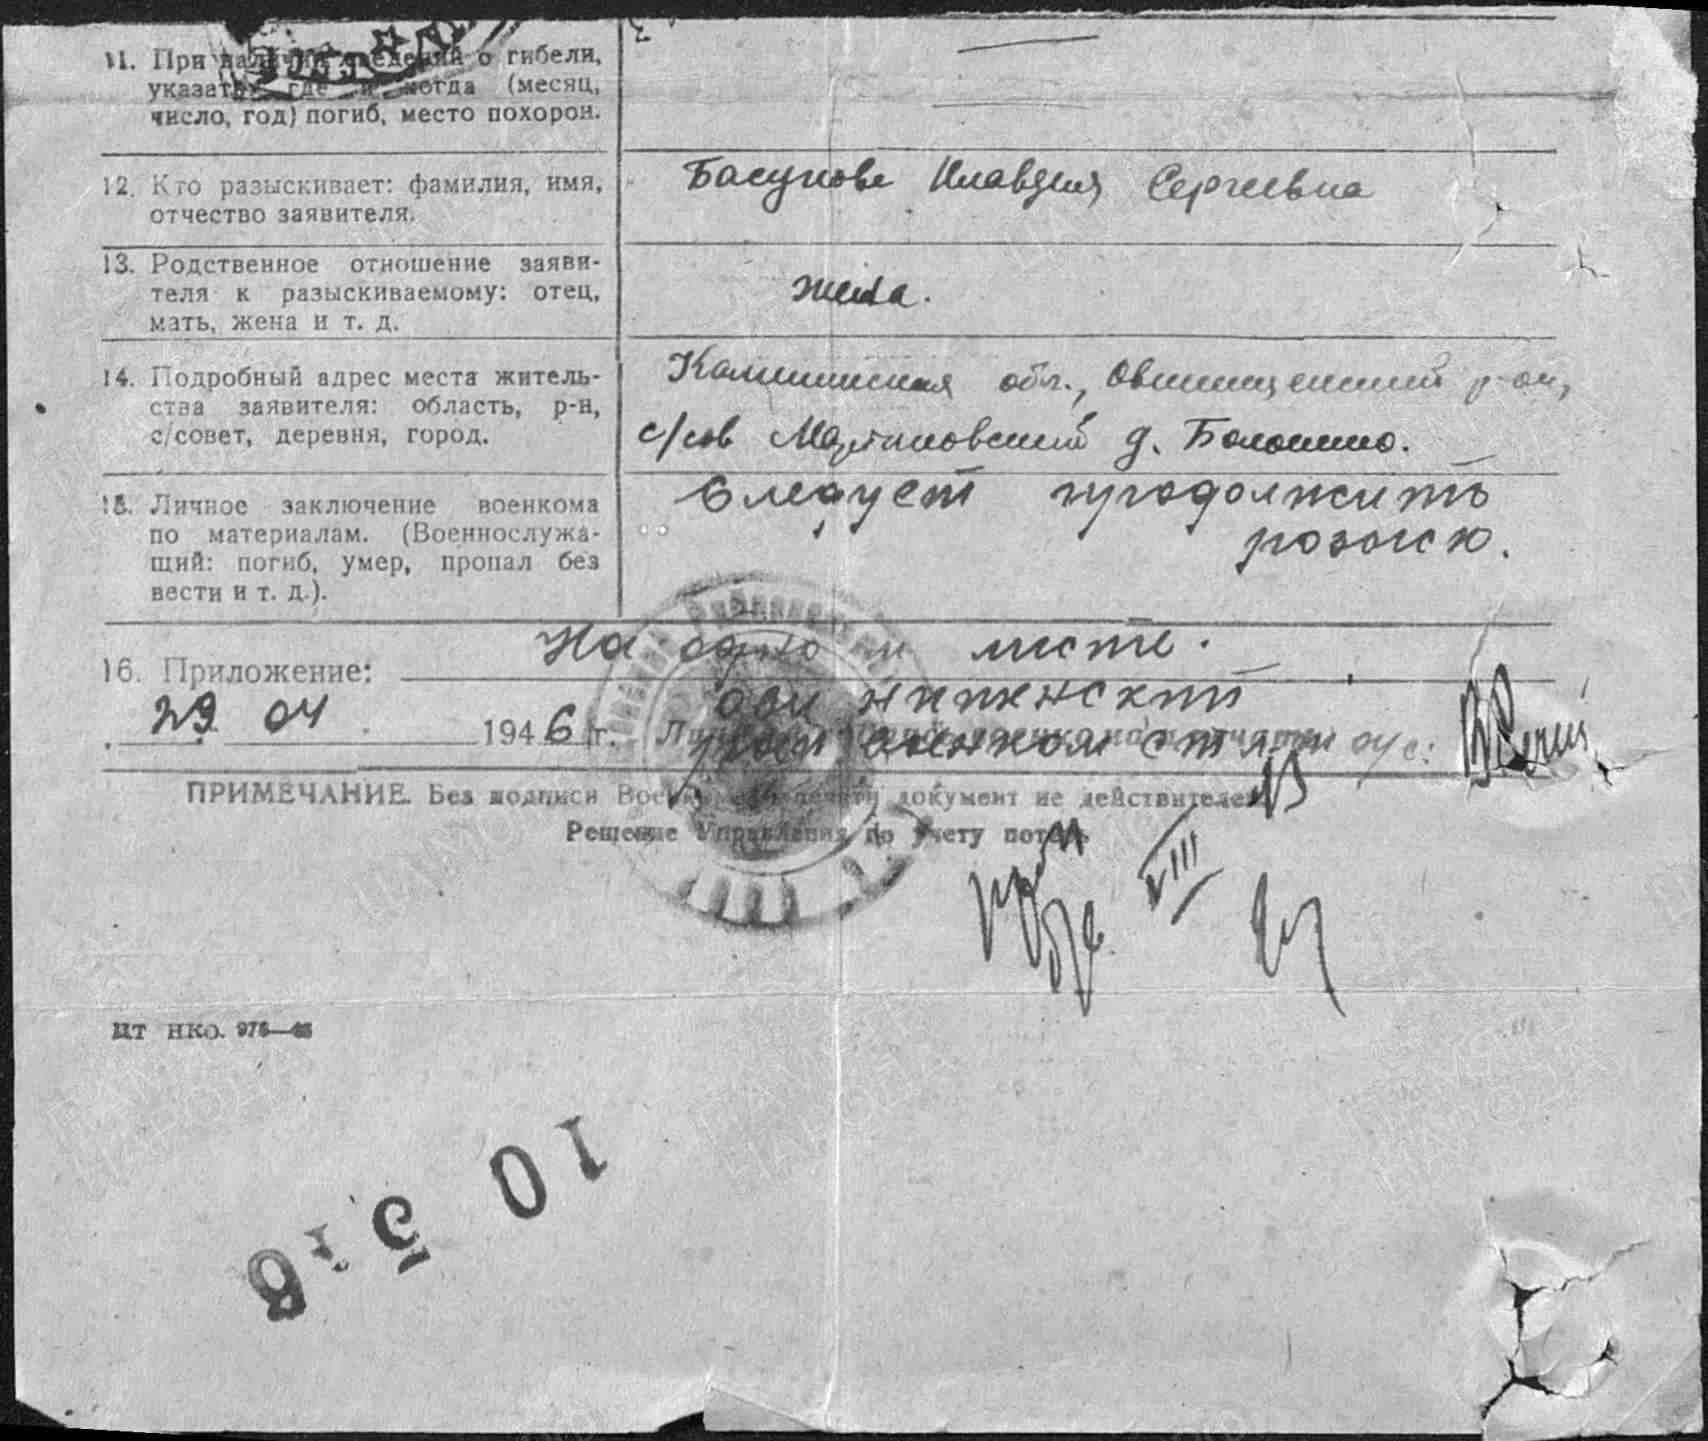 11. При наличии сведений о гибели,
указать, где и когда (месяц,
число, год) погиб, место похорон.
12. Кто разыскивает: фамилия, имя,
отчество заявителя.
Басукова Клавдия Сергеевна
13. Родственное отношение заяви-
теля к разыскиваемому: отец,
мать, жена и т. д.
жена.
14. Подробный адрес места житель-
ства заявителя: область, р-н,
с/совет, деревня, город.
Калининская обл., Овинищенский р-он,
с/сов Мартыновский д.
15. Личное заключение военкома
по материалам. (Военнослужа-
щий: погиб, умер, пропал без
вести и т. д.).
Следует продолжить
розыск.
16. Приложение: На одном листе.
29 04 1946 г.
райвоенком
ПРИМЕЧАНИЕ. Без подписи Военкома и печати документ не действителен.
Решение Управления по учету потерь
VIII
ЦТ НКО. 976—
10 5